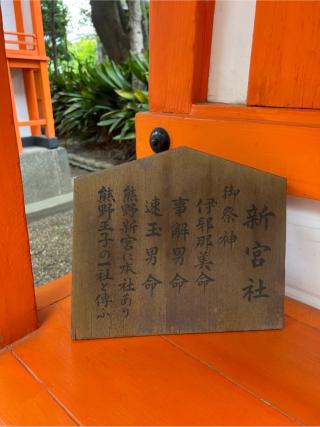 新宮社
御祭神
伊邪那美命
事解男命
速玉男命
熊野新宮に本社あり
熊野王子の一社と傳ふ